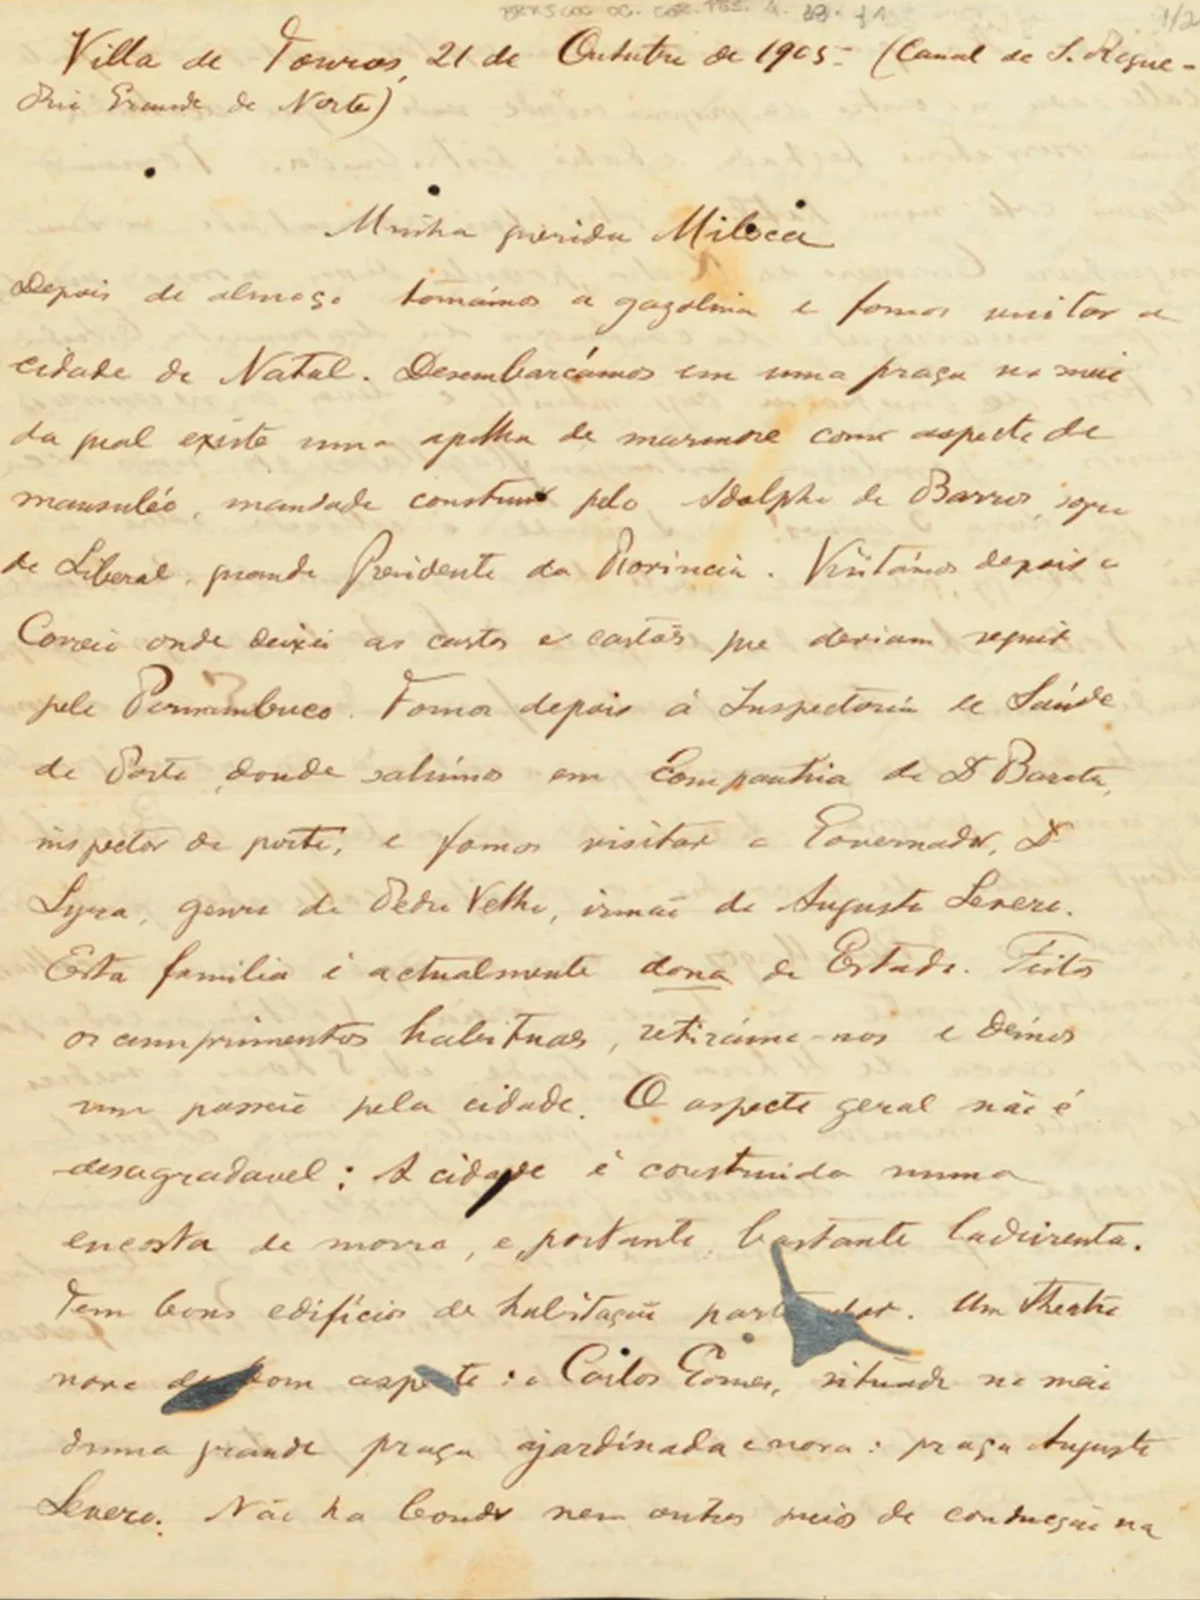 1/2
Villa de Touros, 21 de Outubro de 1905 - (Canal de S. Roque -
Rio Grande do Norte)
Minha querida Miloca
Depois do almoço tomámos a gazolina e fomos visitar a
cidade de Natal. Desembarcámos em uma praça no meio
da qual existe uma agulha de marmore com o aspecto de
mausuléo, mandado construir pelo Adolpho de Barros, sogro
do Liberal, quando Presidente da Provincia. Visitámos depois o
Correio onde deixei as cartas e cartões que deviam seguir
pelo Pernambuco. Fomos depois á Inspectoria de Saúde
do Porto, donde sahimos em companhia do Dr Barata,
inspector do porto, e fomos visitar o Governador, Dr
Lyra, genro de Pedro Velho, irmão de Augusto Severo.
Esta familia é actualmente dona do Estado. Feitos
os cumprimentos habituaes, retirámo-nos e démos
um passeio pela cidade. O aspecto geral não é
desagradavel: A cidade é construida numa
encosta de morro, e, portanto, bastante ladeirenta.
Tem bons edifícios de habitação particular. Um theatro
novo de bom aspecto: o Carlos Gomes, situado no meio
duma grande praça ajardinada e nova: praça Augusto
Severo. Não ha bonds nem outros meios de conducção na